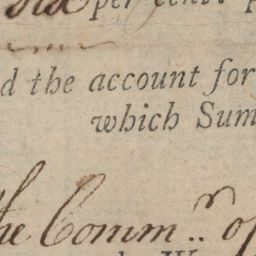 six per cent. p
d the account for
which Sum
the Comm.r of